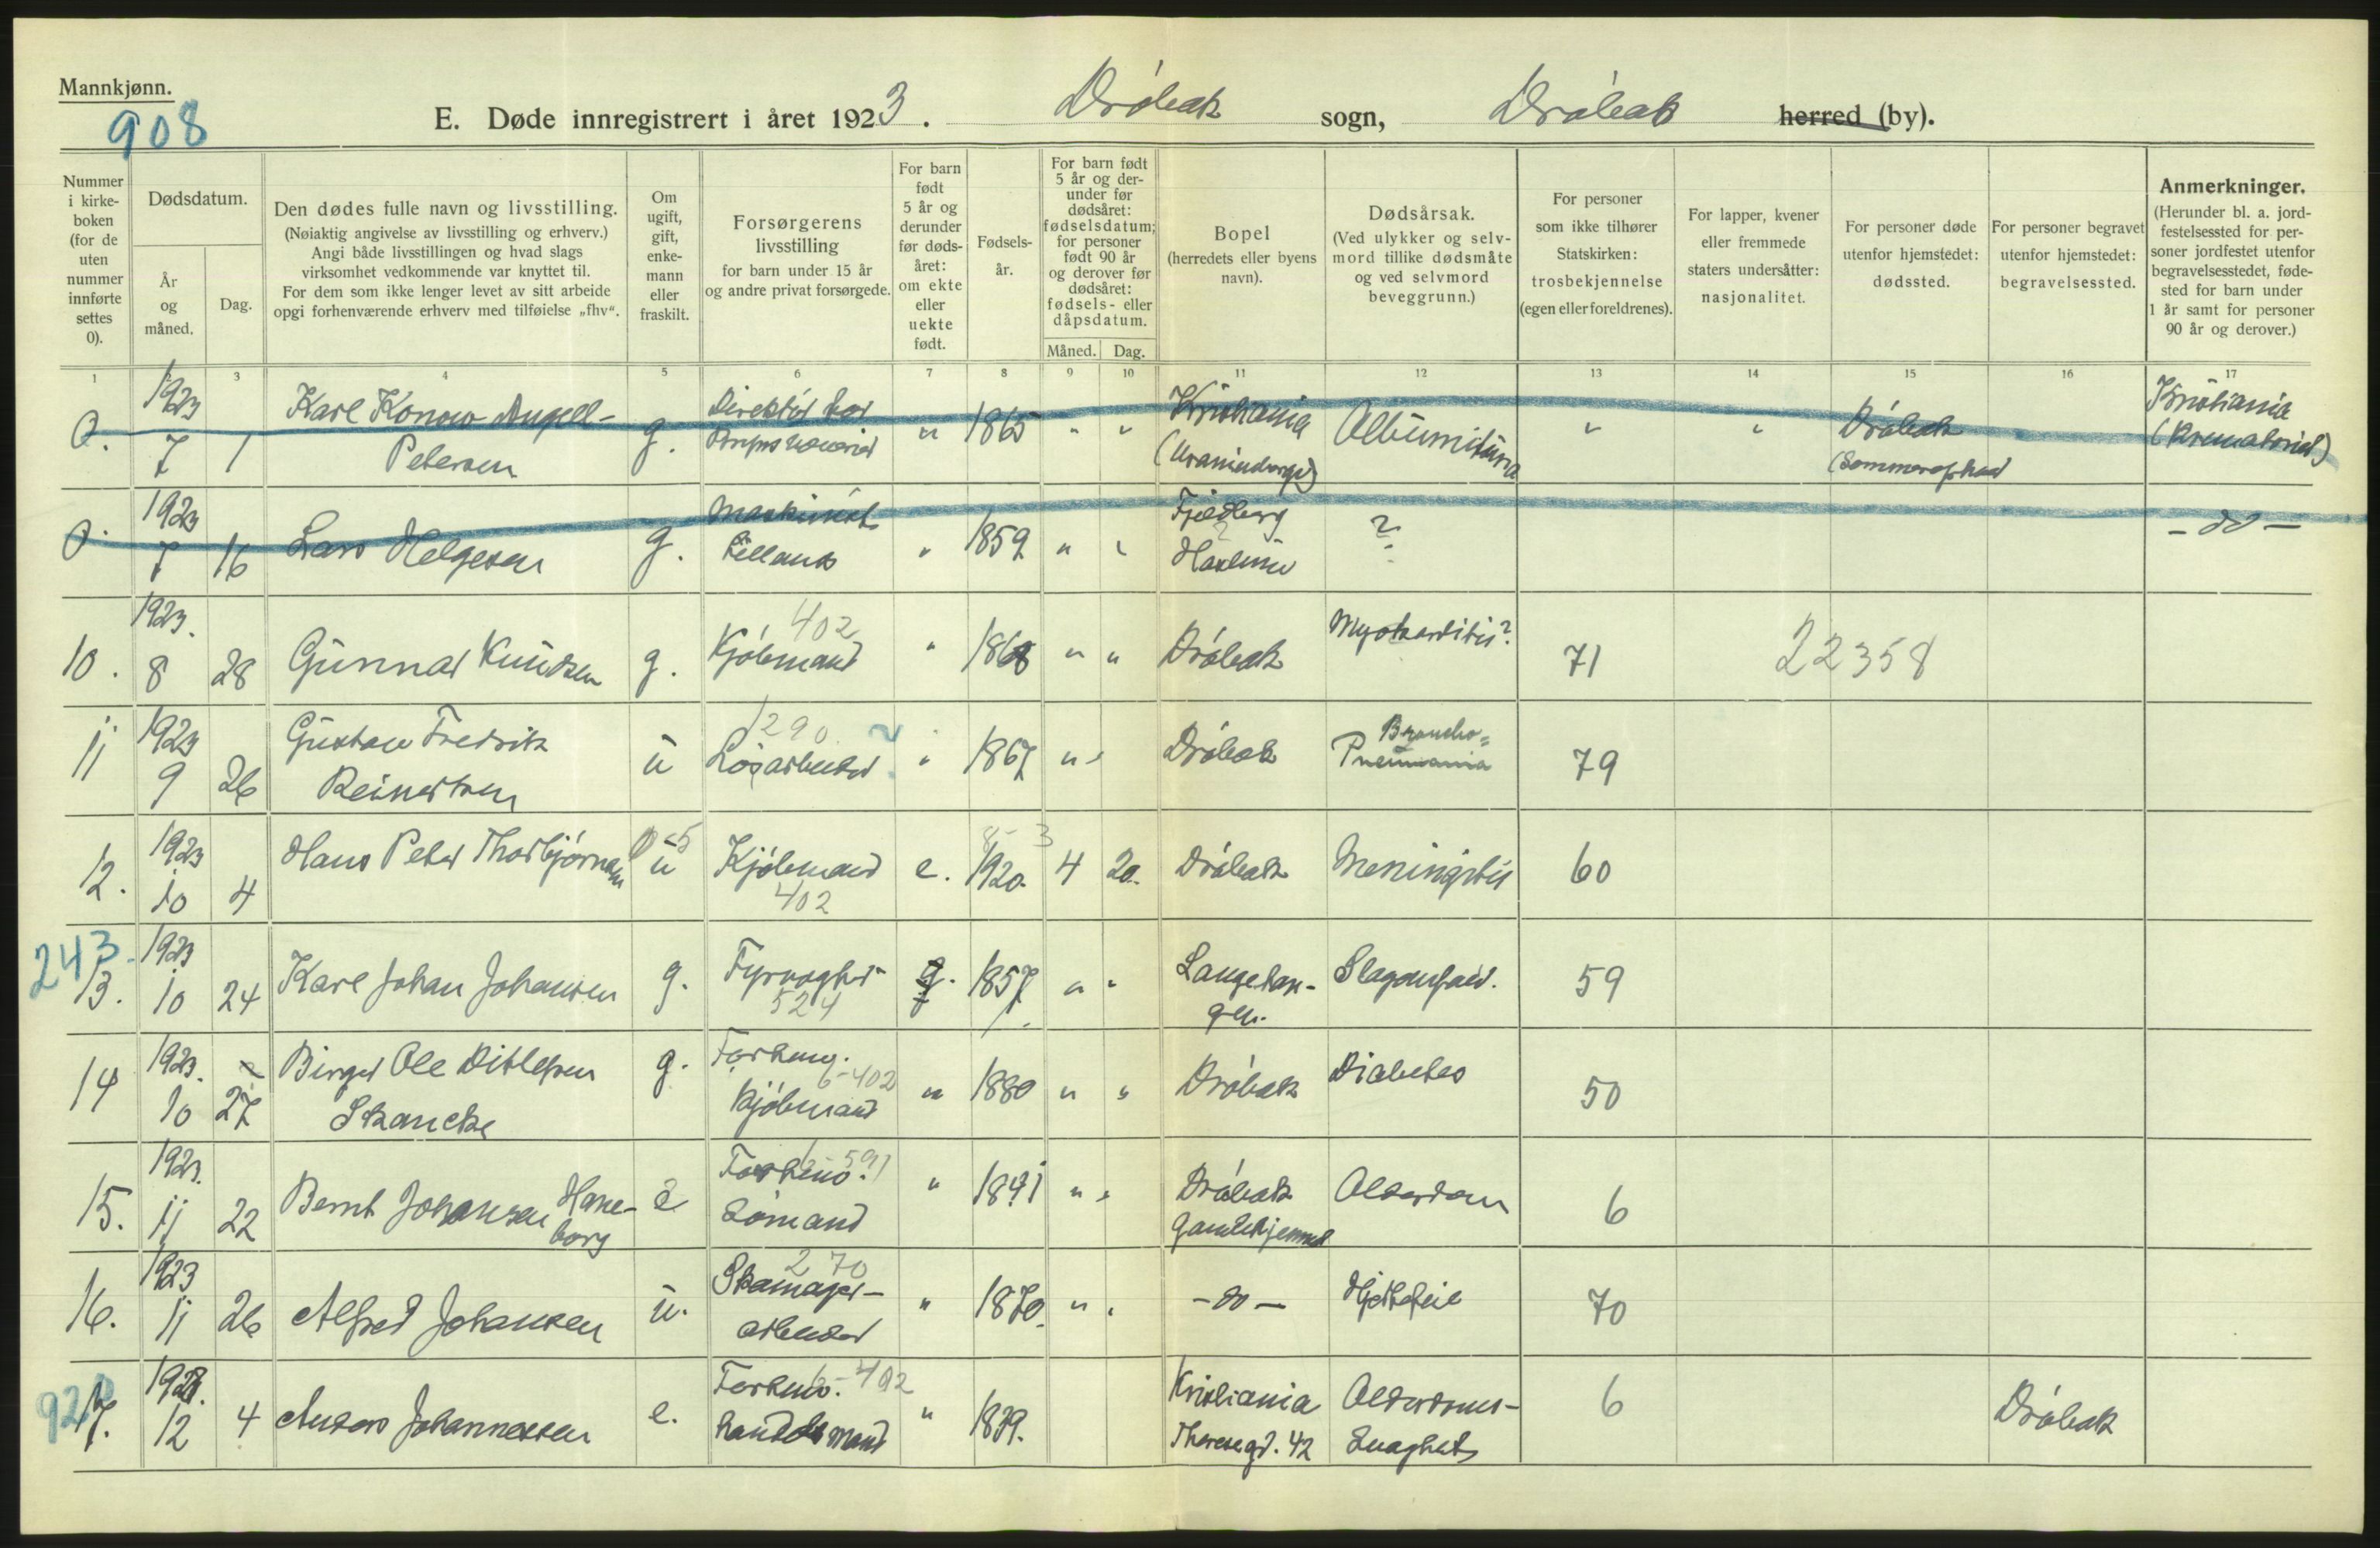 Mannkjønn.
908
E. Døde innregistrert i året 1923. Drøbak sogn, Drøbak herred (by).
Nummer i kirkeboken (for de uten nummer innførte settes 0).
Dødsdatum.
År og måned.
Dag.
Den dødes fulle navn og livsstilling.
(Nøiaktig angivelse av livsstilling og erhverv.)
Angi både livsstillingen og hvad slags
virksomhet vedkommende var knyttet til.
For dem som ikke lenger levet av sitt arbeide
opgi forhenværende erhverv med tilføielse „fhv“.
Om ugift, gift, enkemann eller fraskilt.
Forsørgerens livsstilling
for barn under 15 år
og andre privat forsørgede.
For barn født 5 år og derunder før dødsåret: om ekte eller uekte født.
Fødselsår.
For barn født 5 år og derunder før dødsåret: fødselsdatum; for personer født 90 år og derover før dødsåret: fødsels- eller dåpsdatum.
Måned. Dag.
Bopel
(herredets eller byens navn).
Dødsårsak.
(Ved ulykker og selvmord tillike dødsmåte og ved selvmord beveggrunn.)
For personer som ikke tilhører Statskirken: trosbekjennelse (egen eller foreldrenes).
For lapper, kvener eller fremmede staters undersåtter: nasjonalitet.
For personer døde utenfor hjemstedet: dødssted.
For personer begravet utenfor hjemstedet: begravelsessted.
Anmerkninger.
(Herunder bl. a. jordfestelsessted for personer jordfestet utenfor begravelsesstedet, fødested for barn under 1 år samt for personer 90 år og derover.)
1 3 4 5 6 7 8 9 10 11 12 13 14 15 16 17
0. 1923 7 1 Karl Konow Angell- Petersen g. Direktør " 1865 " " Kristiania Albuminuria " " Drøbak Kristiania (Krematoriet)
0. 1923 7 16 Lars Helgesen g. Maskinist " 1859 " " Fjeldberg ? ? - do -
10. 1923. 8 28 Gunnar Knudsen g. 402 Kjøbmand " 1868 " " Drøbak Myokarditis? 71 22358
11 1923 9 26 Gustav Fredrik Reinertsen u 1290 Løsarbeider " 1867 " " Drøbak Broncho= Pneumonia 79
12. 1923 10 4 Hans Peter Thorbjørnsen u Kjøbmand 402 e. 1920. 4 20. Drøbak Meningitis 60
243 13. 1923 10 24 Karl Johan Johansen g. Fyrvogter 524 1857 " " Langetangen. Slaganfald. 59
14 1923. 10 27 Birger Ole Ditlefsen Skancke g. Forhenv. 6-402 Kjøbmand " 1880 " " Drøbak Diabetes 50
15. 1923. 11 22 Bernt Johansen Haneborg e Forhenv. 6-591 Sømand " 1841 " " Drøbak Gamlehjemmet Alderdom 6
16. 1923 11 26 Alfred Johansen u. 270 Skomager- arbeider " 1870. " " - do - Hjertefeil 70
17. 1923. 12 4 Anders Johannessen e. Forhenv. 6-402 handelsmand " 1839. Kristiania Theresegd. 42 Alderdoms- Svaghet 6 Drøbak